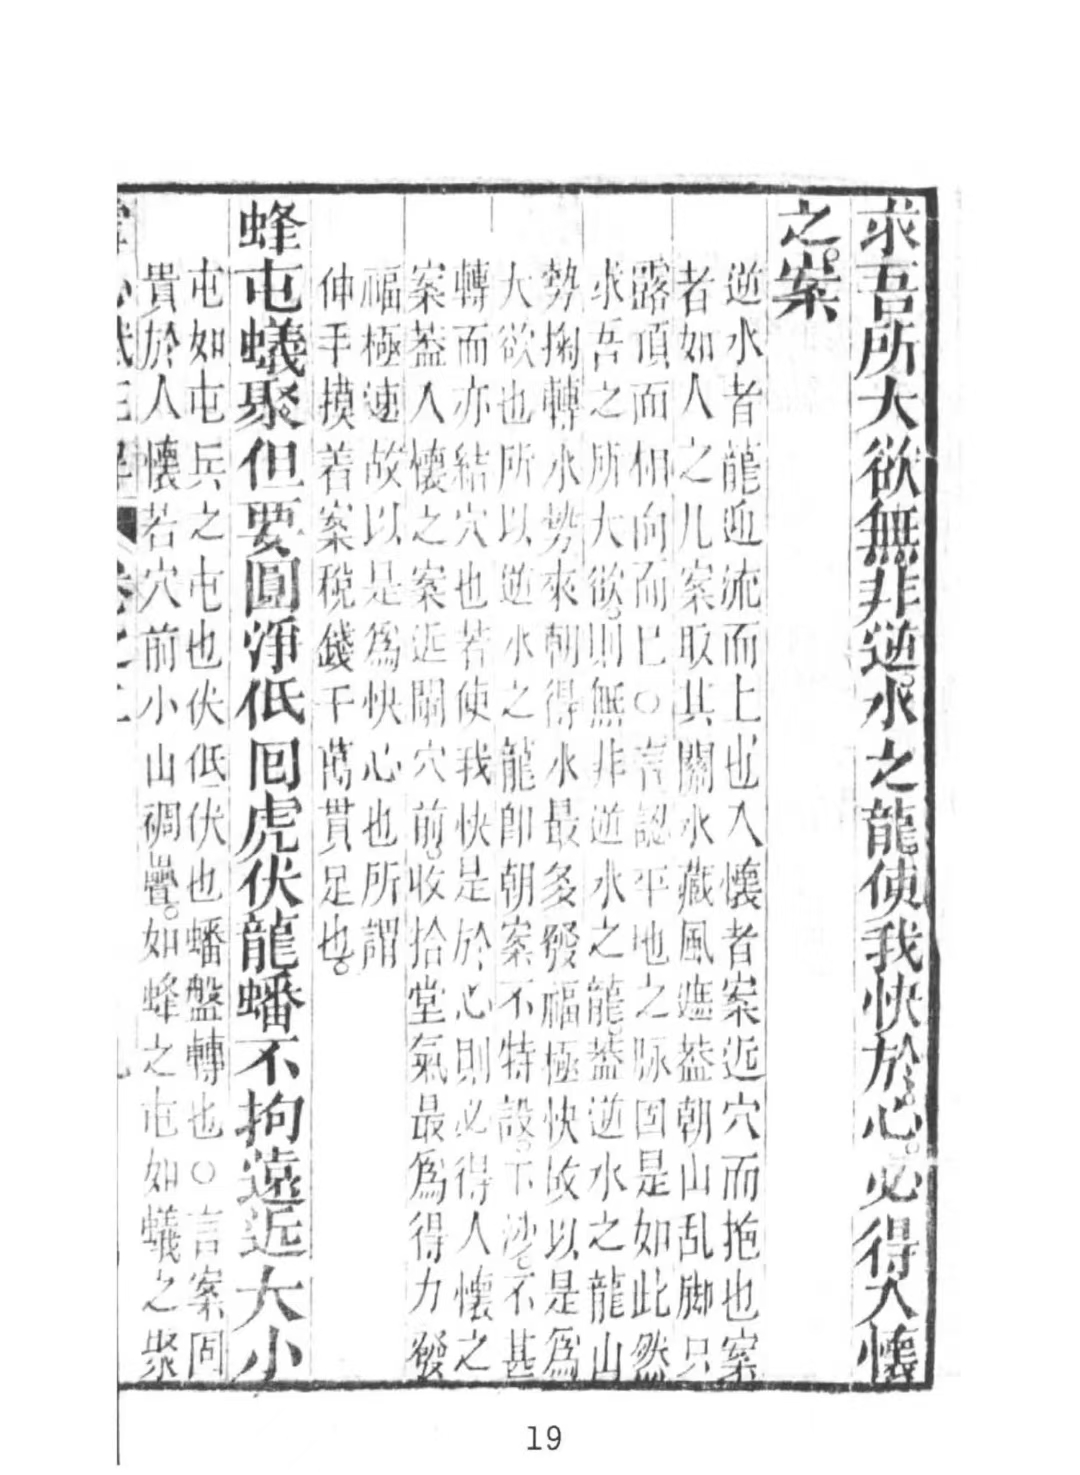 求吾所大欲無非逆水之龍使我快於心必得入懷
之案
逆水者龍逆流而上也入懷者案近穴而抱也案
者如人之几案取其關水藏風遮葢朝山乱脚只
露頂而相向而已○言認平地之脉固是如此然
求吾之所大欲則無非逆水之龍葢逆水之龍山
勢掬轉水勢來朝得水最多發福極快故以是爲
大欲也所以逆水之龍卽朝案不特設下沙不甚
轉而亦結穴也若使我快是於心則必得入懷之
案葢入懷之案近關穴前收拾堂氣最爲得力發
福極速故以是爲快心也所謂
伸手摸着案稅錢千萬貫足也
蜂屯蟻聚但要圓淨低囘虎伏龍蟠不拘遠近大小
屯如屯兵之屯也伏低伏也蟠盤轉也○言案固
貴於入懷若穴前小山稠疊如蜂之屯如蟻之聚
19